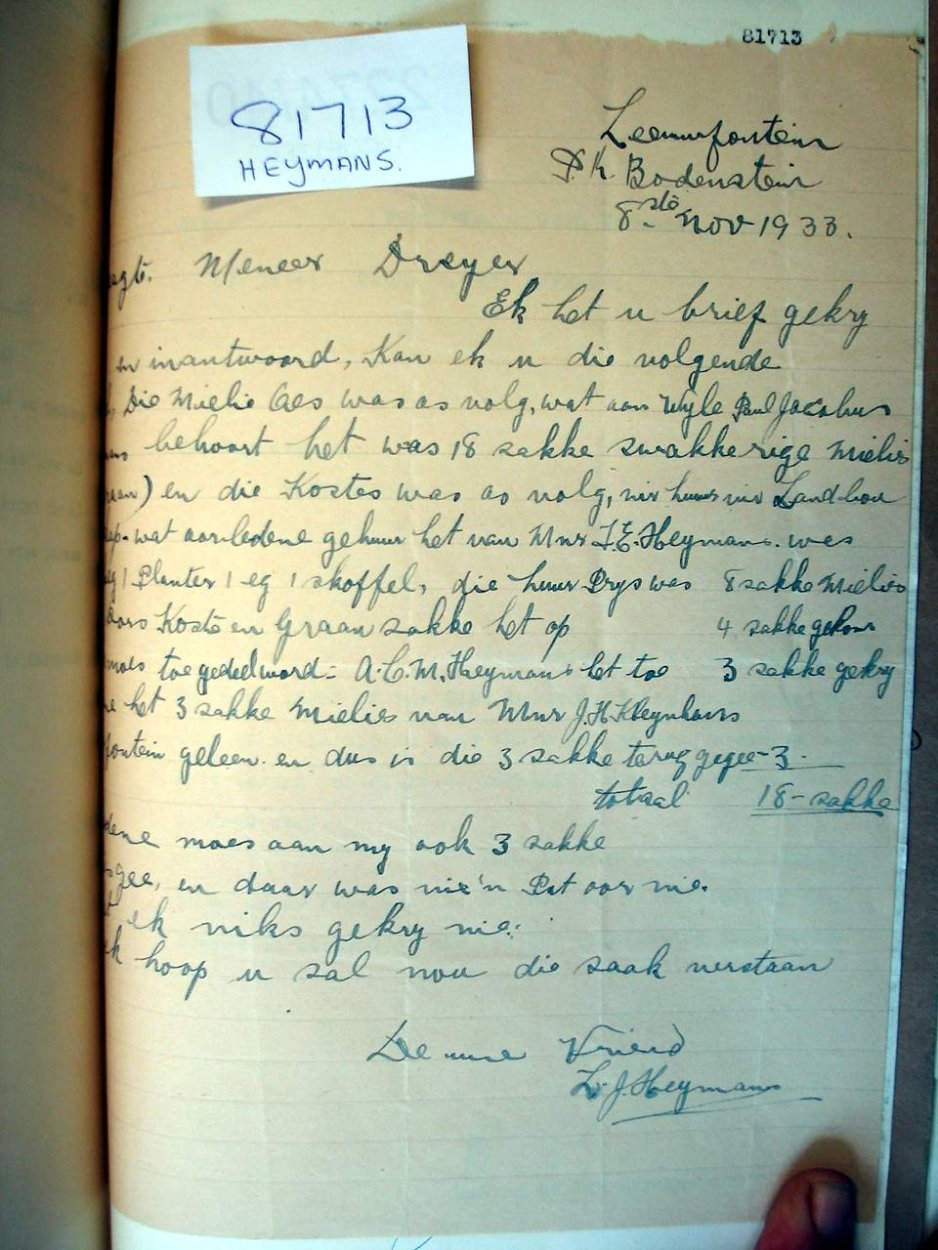 81713
81713
HEYMANS.
Leeuwfontein
P.k. Bodenstein
8ste Nov 1933.
Meneer Dreyer
Ek het u brief gekry
en inantwoord, Kan ek u die volgende
Die Mielie Oes was as volg, wat aan Wyle Paul Jacobus
behoort het was 18 sakke swakkerige mielies
en die Kostes was as volg, Landbou
wat oorledene gehuur het van Mnr J.E. Heymans. was
1 Planter 1 eg 1 skoffel, die huur Prys was 8 sakke Mielies
Koste en Graan sakke het op 4 sakke gekom
toegedeel word: A.C.M. Heymans het toe 3 sakke gekry
het 3 sakke Mielies van Mnr J.H. Kleynhans
geleen. en dus is die 3 sakke terug gegee - 3.
totaal 18 - sakke
moes aan my ook 3 sakke
gee, en daar was nie 'n oor nie.
ek niks gekry nie.
hoop u sal nou die saak verstaan
Vriend
L.J. Heymans